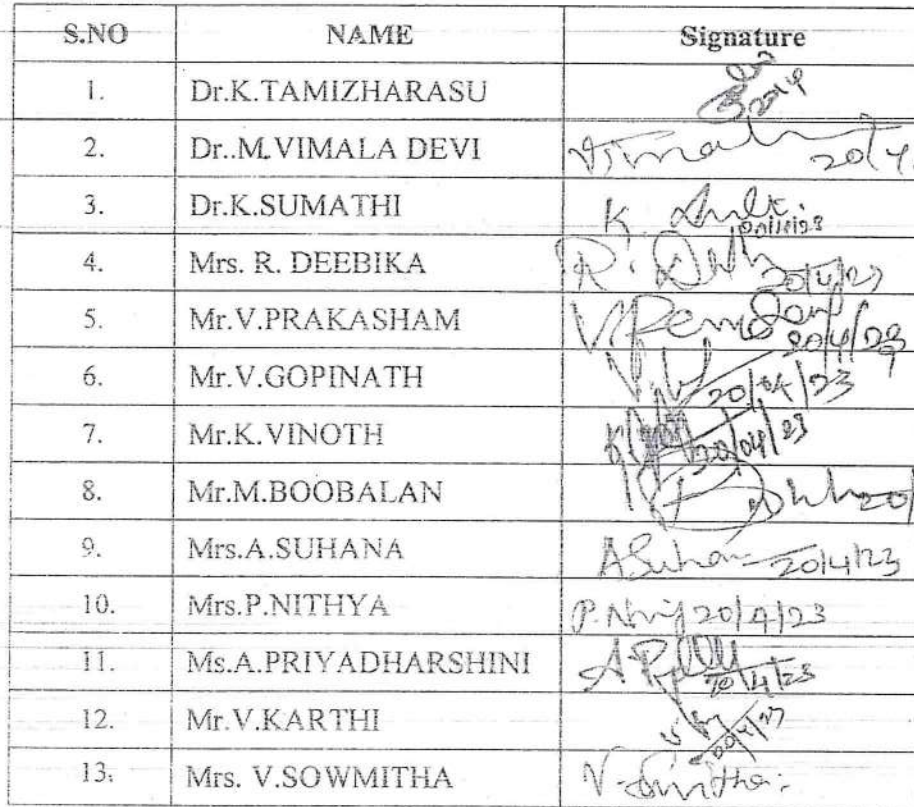 S.NO NAME Signature
1. Dr.K.TAMIZHARASU 20/4
2. Dr..M.VIMALA DEVI Vimala 20/4
3. Dr.K.SUMATHI K.
4. Mrs. R. DEEBIKA R. 20/4/23
5. Mr.V.PRAKASHAM 20/4/23
6. Mr.V.GOPINATH 20/04/23
7. Mr.K.VINOTH 20/04/23
8. Mr.M.BOOBALAN 20/
9. Mrs.A.SUHANA A.Suhana 20/4/23
10. Mrs.P.NITHYA P. 20/4/23
11. Ms.A.PRIYADHARSHINI A. 20/4/23
12. Mr.V.KARTHI
13. Mrs. V.SOWMITHA